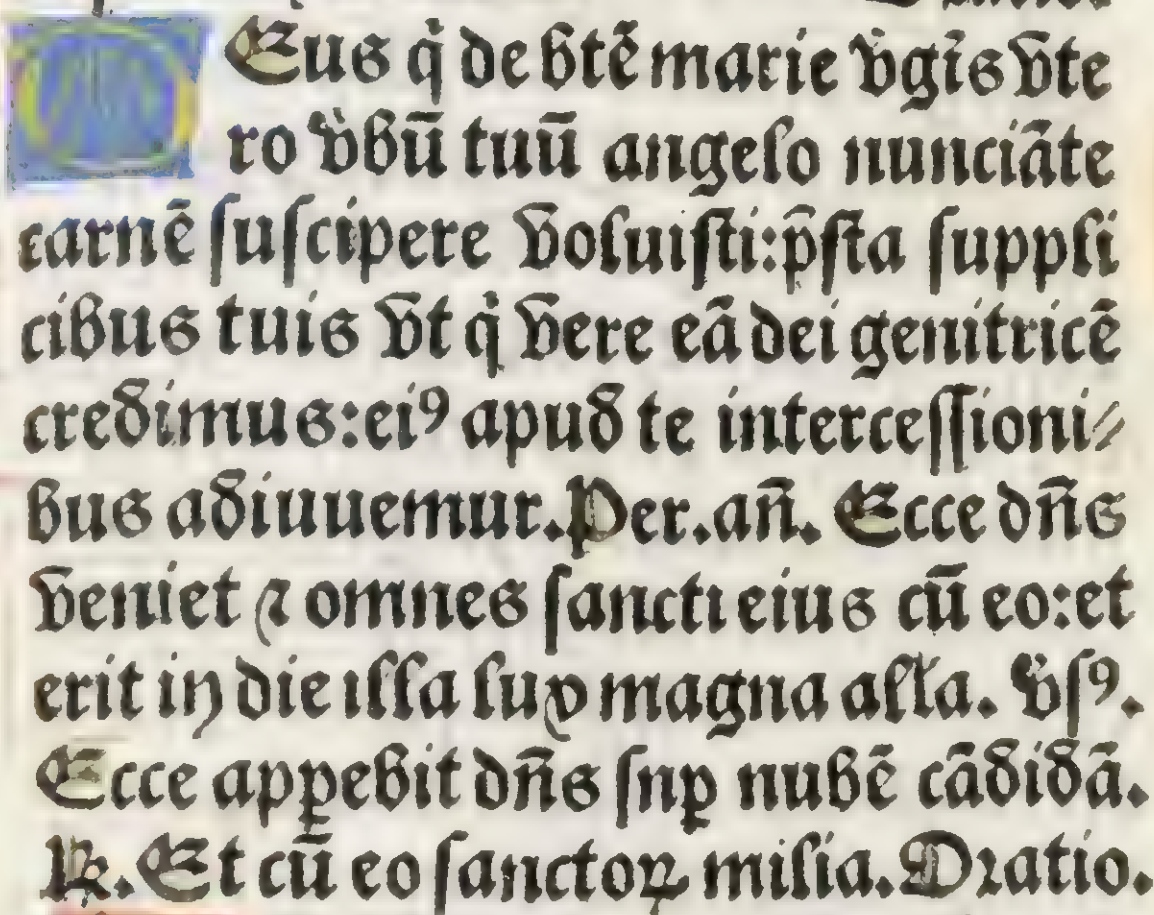 Deus q̇ de btē marie v̄gīs vte
ro v̇bū tuū angelo nunciāte
carnē ſuſcipere voluiſti: p̄ſta ſuppli
cibus tuis vt q̇ vere eā dei genitricē
credimus: eiꝰ apud te interceſſioni⸗
bus adiuuemur. Per. an̄. Ecce dn̄s
veniet ⁊ omnes ſancti eius cū eo: et
erit in die illa lux magna alla. v̇ſꝰ.
Ecce apꝑebit dn̄s ſnꝑ nubē cādidā.
℞. Et cū eo ſanctoꝝ milia. Oratio.